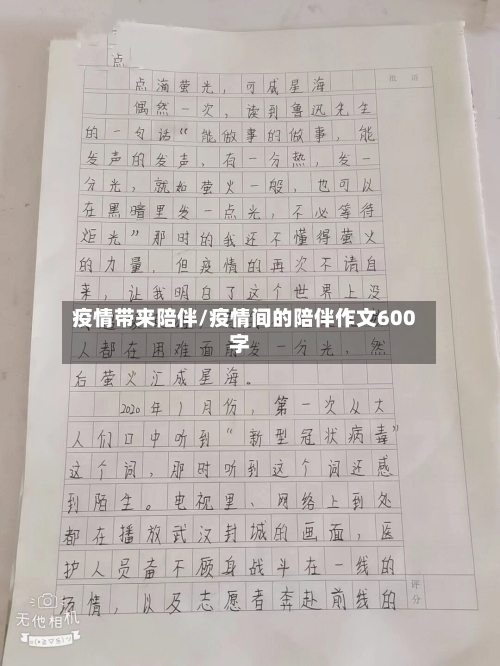 点
点滴萤光，可成星海
批 语
偶然一次，读到鲁迅先生
的一句话“能做事的做事，能
发声的发声，有一分热，发一
分光，就如萤火一般，也可以
在黑暗里发一点光，不必等待
炬光”那时的我还不懂得萤火
的力量，但疫情的再次不请自
来，让我明白了这个世界上没
疫情带来陪伴/疫情间的陪伴作文600
字
人都在困难面前发一分光，然
后萤火汇成星海。
2020年1月份，第一次从大
人们口中听到“新型冠状病毒”
这个词，那时听到这个词还感
到陌生。电视里、网络上到处
都在播放武汉封城的画面，医
护人员奋不顾身战斗在一线的
评
分
场情，以及志愿者奔赴前线的
无他相机